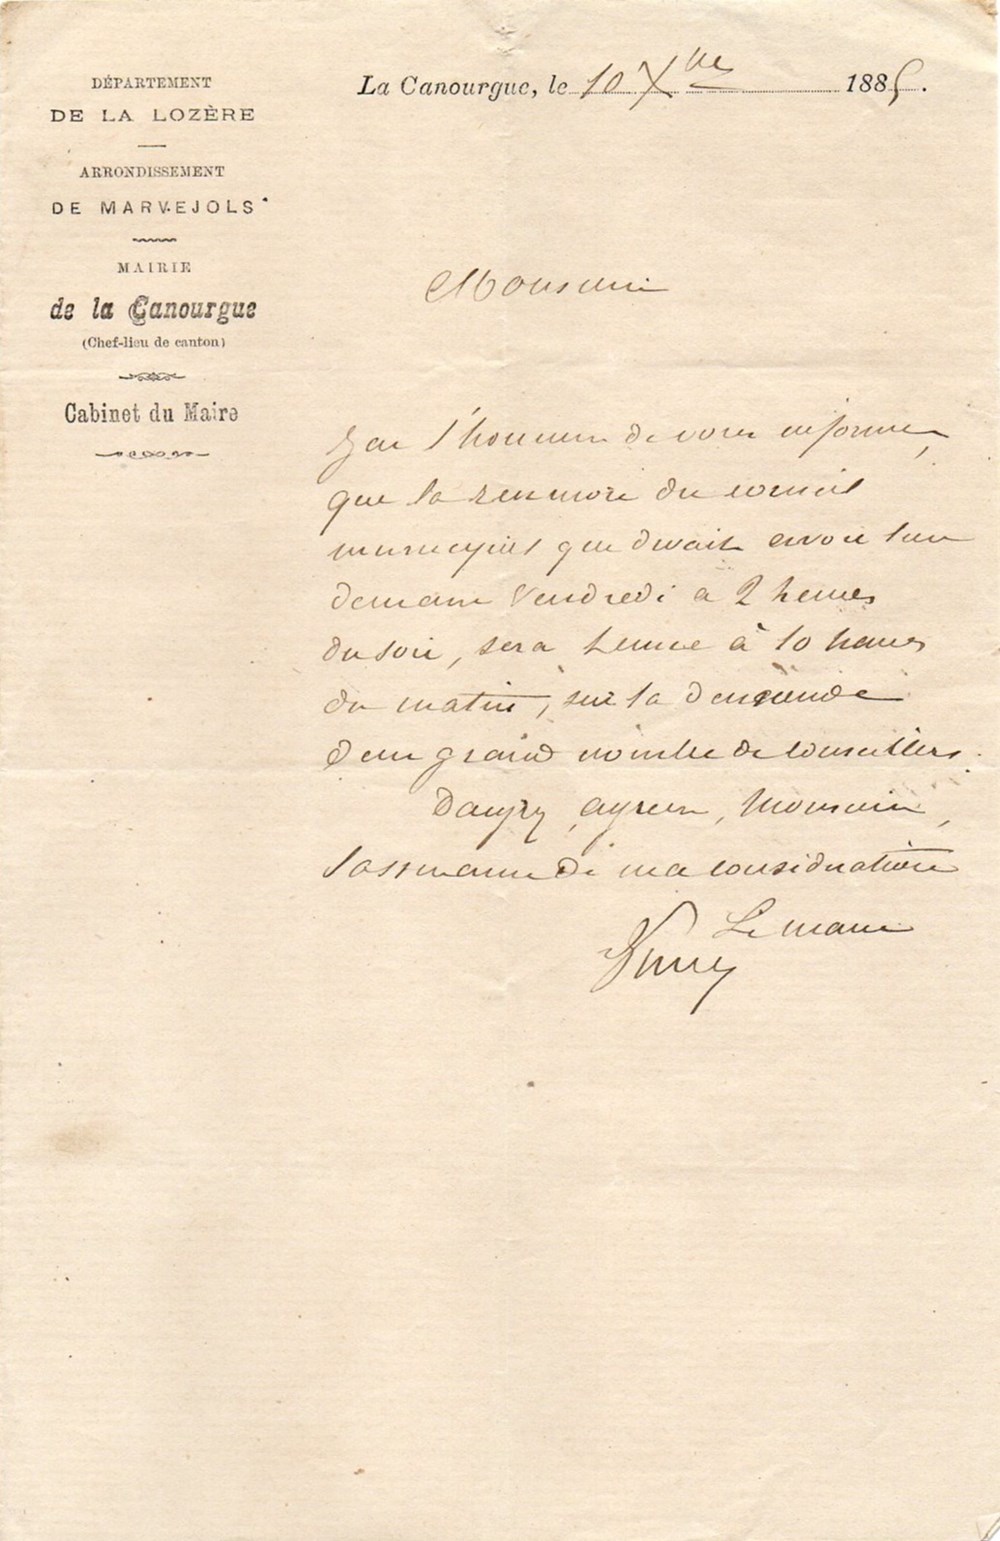 DÉPARTEMENT
DE LA LOZÈRE
ARRONDISSEMENT
DE MARVEJOLS
MAIRIE
de la Canourgue
(Chef-lieu de canton)
Cabinet du Maire
La Canourgue, le 10 Xbre 1885.
Monsieur
J'ai l'honneur de vous informer,
que la reunion du conseil
municipal qui devait avoir lieu
demain Vendredi a 2 heures
du soir, sera tenue à 10 heures
du matin, sur la demande
d'un grand nombre de conseillers.
Daignez agréer, Monsieur,
l'assurance de ma consideration
Le maire